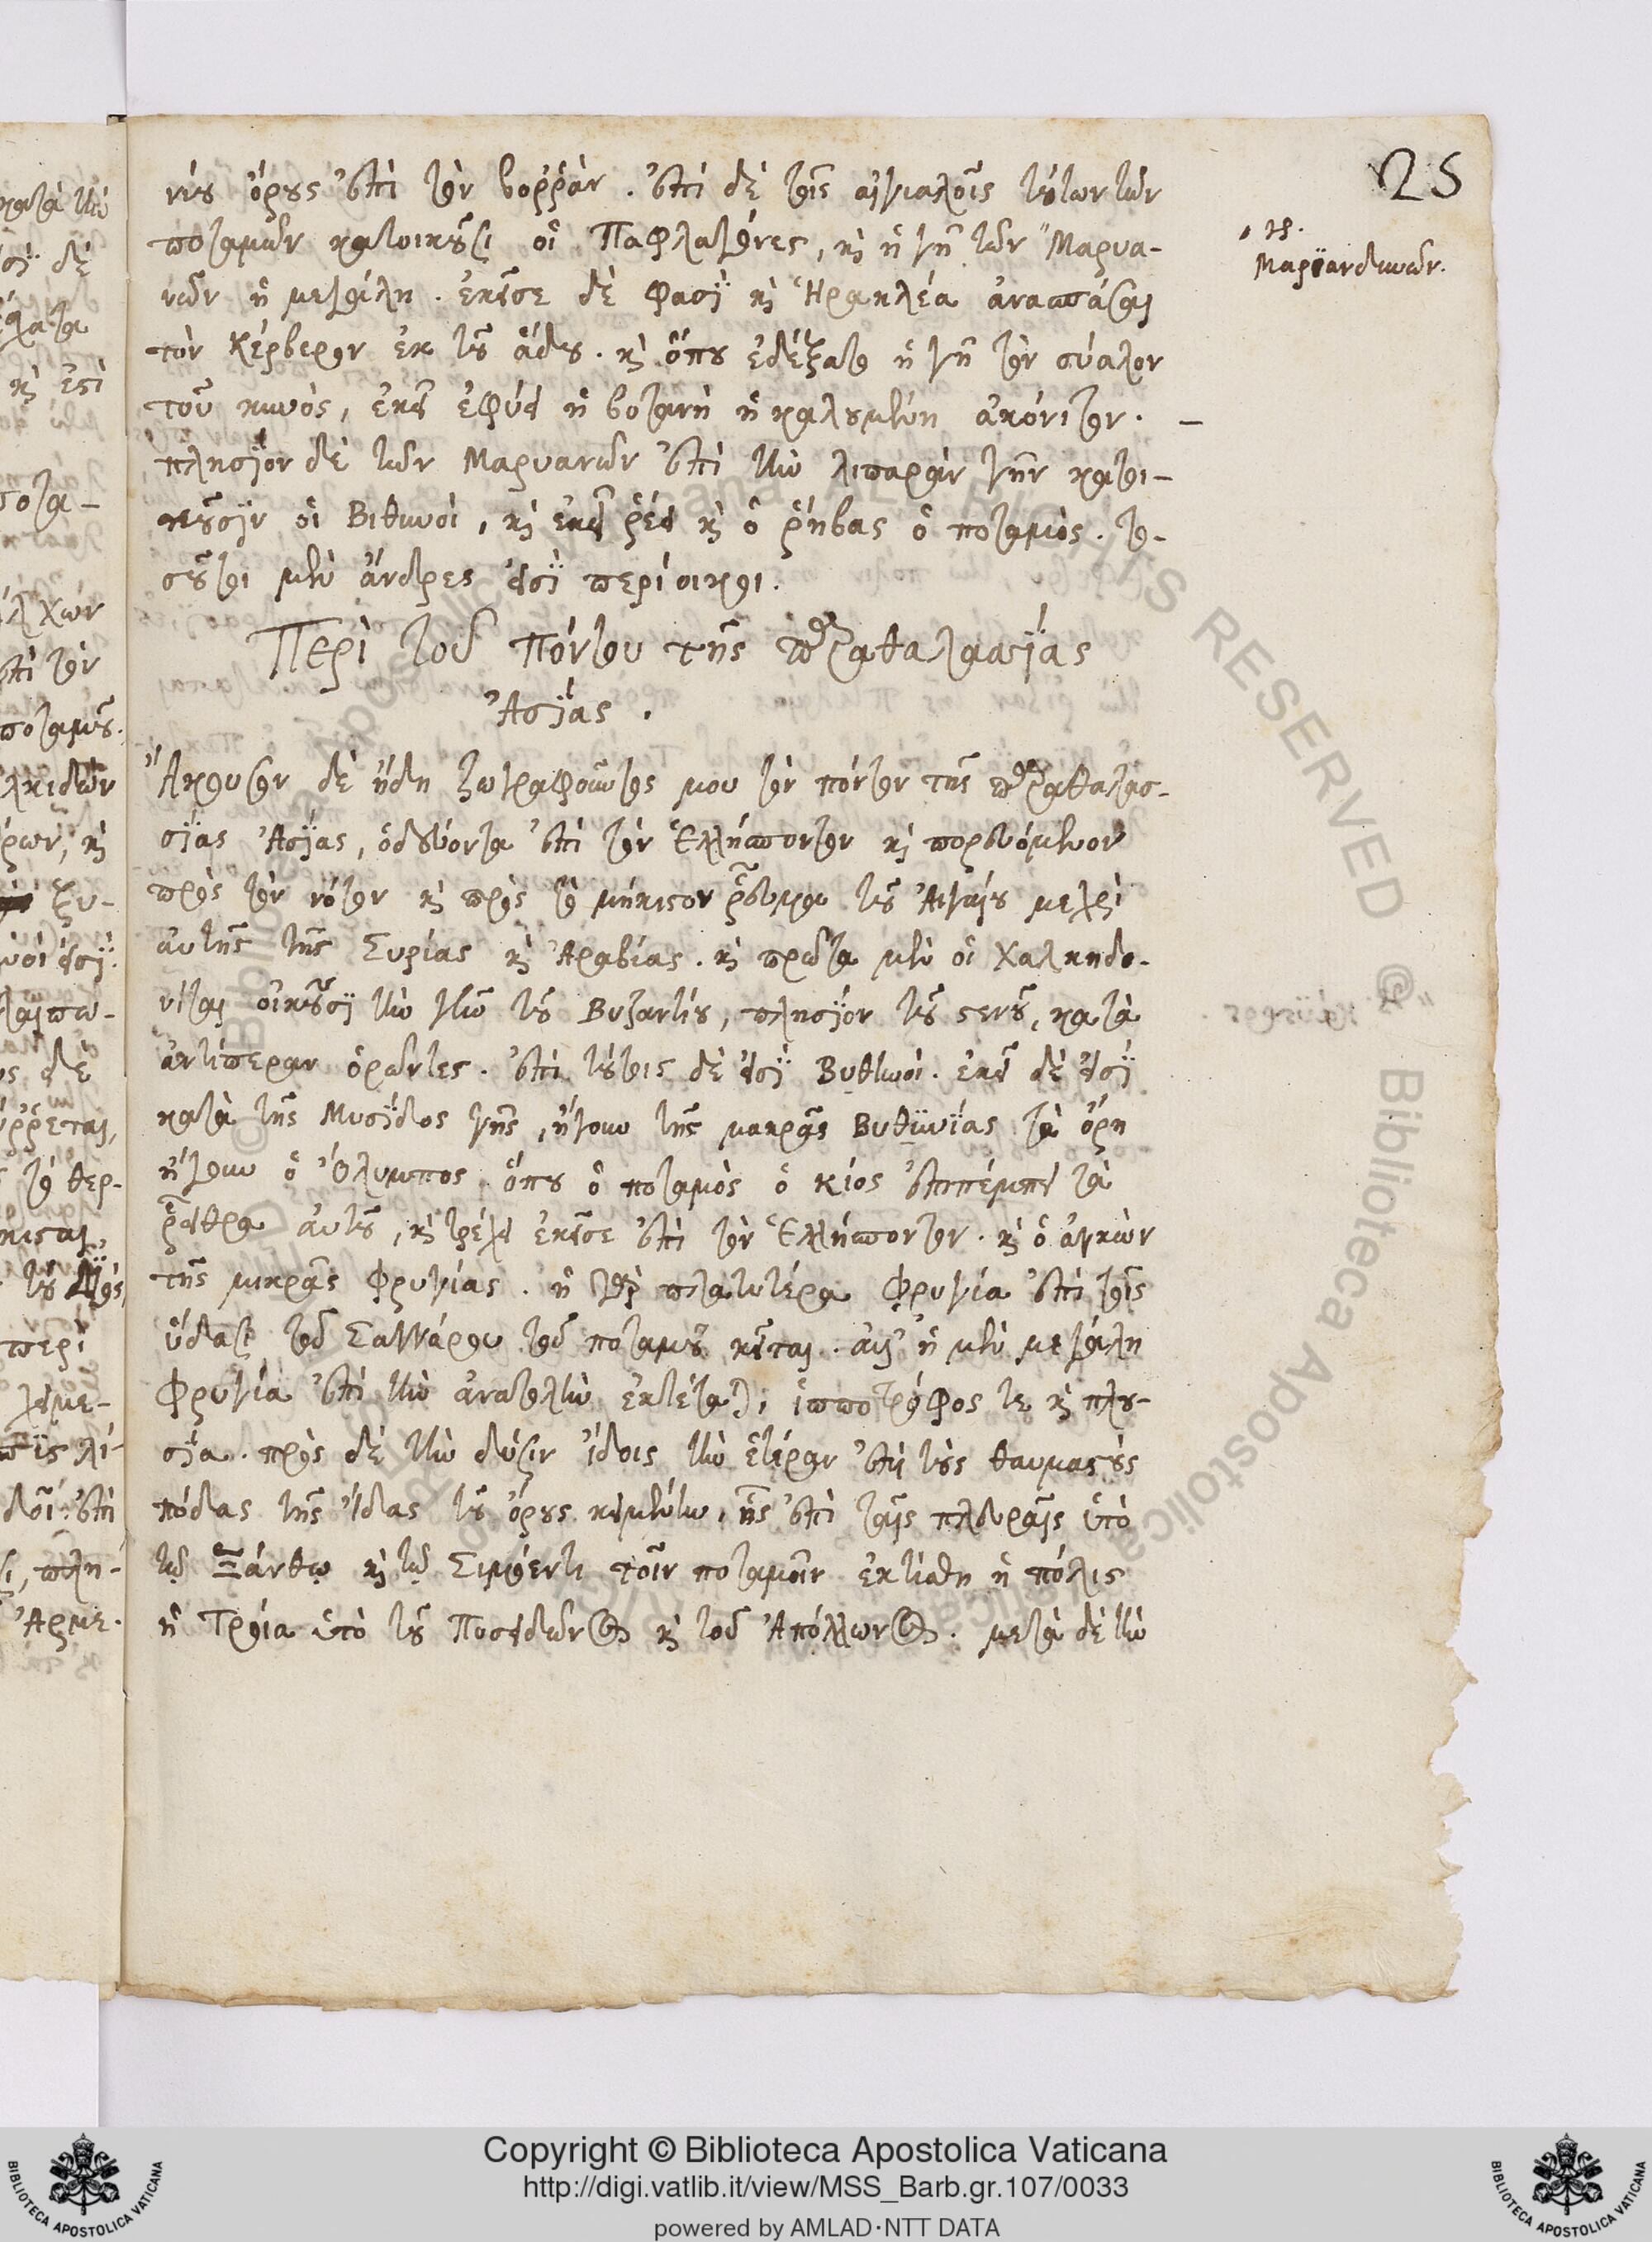 25
νίου ὄρους ἐπὶ τὸν βοῤῥᾶν. ἐπὶ δὲ τοῖς αἰγιαλοῖς τούτων τῶν
ποταμῶν κατοικοῦσι οἱ Παφλαγόνες, καὶ ἡ γῆ τῶν Μαρυα-
νῶν ἡ μεγάλη. ἐκεῖσε δὲ φασῒ καὶ Ἡρακλέα ἀνασπάσαι
τὸν Κέρβερον ἐκ τοῦ ᾅδου. καὶ ὅπου ἐδέξατο ἡ γῆ τὸν σύαλον
τοῦ κυνὸς, ἐκεῖ ἐφύει ἡ βοτανὴ ἡ καλουμένη ἀκόνιτον. –
πλησΐον δὲ τῶν Μαρυανῶν ἐπὶ τὴν λιπαρὰν γῆν κατοι-
κοῦσϊν οἱ Βιθυνοὶ, καὶ ἐκεῖ ῥέει καὶ ὁ ῥήβας ὁ ποταμὸς. το-
σοῦτοι μὲν ἄνδρες εἰσῒ περίοικοι.
Περὶ τοῦ πόντου τῆς παραθαλασσΐας
Ἀσΐας.
Ἄκουσον δὲ ἤδη ζωγραφοῦντος μου τὸν πόντον τῆς παραθαλασ-
σΐας Ἀσΐας, ὁδεύοντα ἐπὶ τὸν Ἑλλήσποντον καὶ πορευόμενον
πρὸς τὸν νότον καὶ πρὸς τὸ μήκιστον ῥεῦμα τοῦ Αἰγαίου μεχρὶ
αὐτῆς τῆς Συρίας καὶ Ἀραβίας. καὶ πρῶτα μὲν οἱ Χαλκηδο-
νίται οἰκοῦσῒ τὴν γῆν τοῦ Βυζαντίου, πλησΐον τοῦ στενοῦ, κατὰ
ἀντίπεραν ὁρῶντες. ἐπὶ τούτοις δὲ εἰσῒ Βυθυνοί. ἐκεῖ δὲ εἰσῒ
κατὰ τῆς Μυσΐδος γῆς, ἤγουν τῆς μακρᾶς Βυθϋνίας τὰ ὄρη
ἤγουν ὁ Ὄλυμπος. ὅπου ὁ ποταμὸς ὁ κίος ἐπιπέμπει τὰ
ῥεῖθρα αὐτοῦ, καὶ τρέχει ἐκεῖσε ἐπὶ τὸν Ἑλλήσποντον. καὶ ὁ ἀγκὼν
τῆς μικρᾶς Φρυγίας. ἡ γὰρ πλατυτέρα Φρυγία ἐπὶ τοῖς
ὕδασι τοῦ Σαγγάρου τοῦ ποταμοῦ κεῖται. ἀλλ' ἡ μὲν μεγάλη
Φρυγία ἐπὶ τὴν ἀνατολὴν ἐκτέταται, ἱπποτρόφος τε καὶ πλου-
σΐα. πρὸς δὲ τὴν δύσιν ἴδοις τὴν ἑτέραν ἐπὶ τοὺς θαυμαστοὺς
πόδας τῆς Ἴδας τοῦ ὄρους κειμένην, ἧς ἐπὶ ταῖς πλευραῖς ὑπὸ
τῷ Ξάνθῳ καὶ τῷ Σιμόεντι τοῖν ποταμοῖν ἐκτίσθη ἡ πόλις
ἡ Τροία ὑπὸ τοῦ Ποσειδῶνος καὶ τοῦ Ἀπόλλωνος. μετὰ δὲ τὴν
Μαρϊανδυνῶν.
Copyright © Biblioteca Apostolica Vaticana
http://digi.vatlib.it/view/MSS_Barb.gr.107/0033
powered by AMLAD·NTT DATA